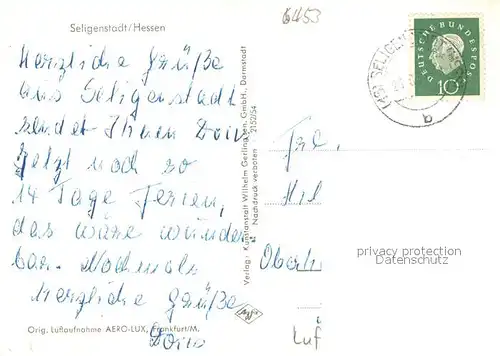 6453
Seligenstadt/Hessen
Herzliche Grüße
aus Seligenstadt
sendet Ihnen Doris
Jetzt noch so
14 Tage Ferien,
das wäre wunder-
bar. Nochmals
herzliche Grüße
Doris
Orig. Luftaufnahme AERO-LUX, Frankfurt/M.
Verlag: Kunstanstalt Wilhelm Gerling sen. GmbH., Darmstadt
Nachdruck verboten 2152/54
DEUTSCHE BUNDESPOST
10
SELIGEN
b
Frl.
Hil
Oberh
Luf
privacy protection
Datenschutz